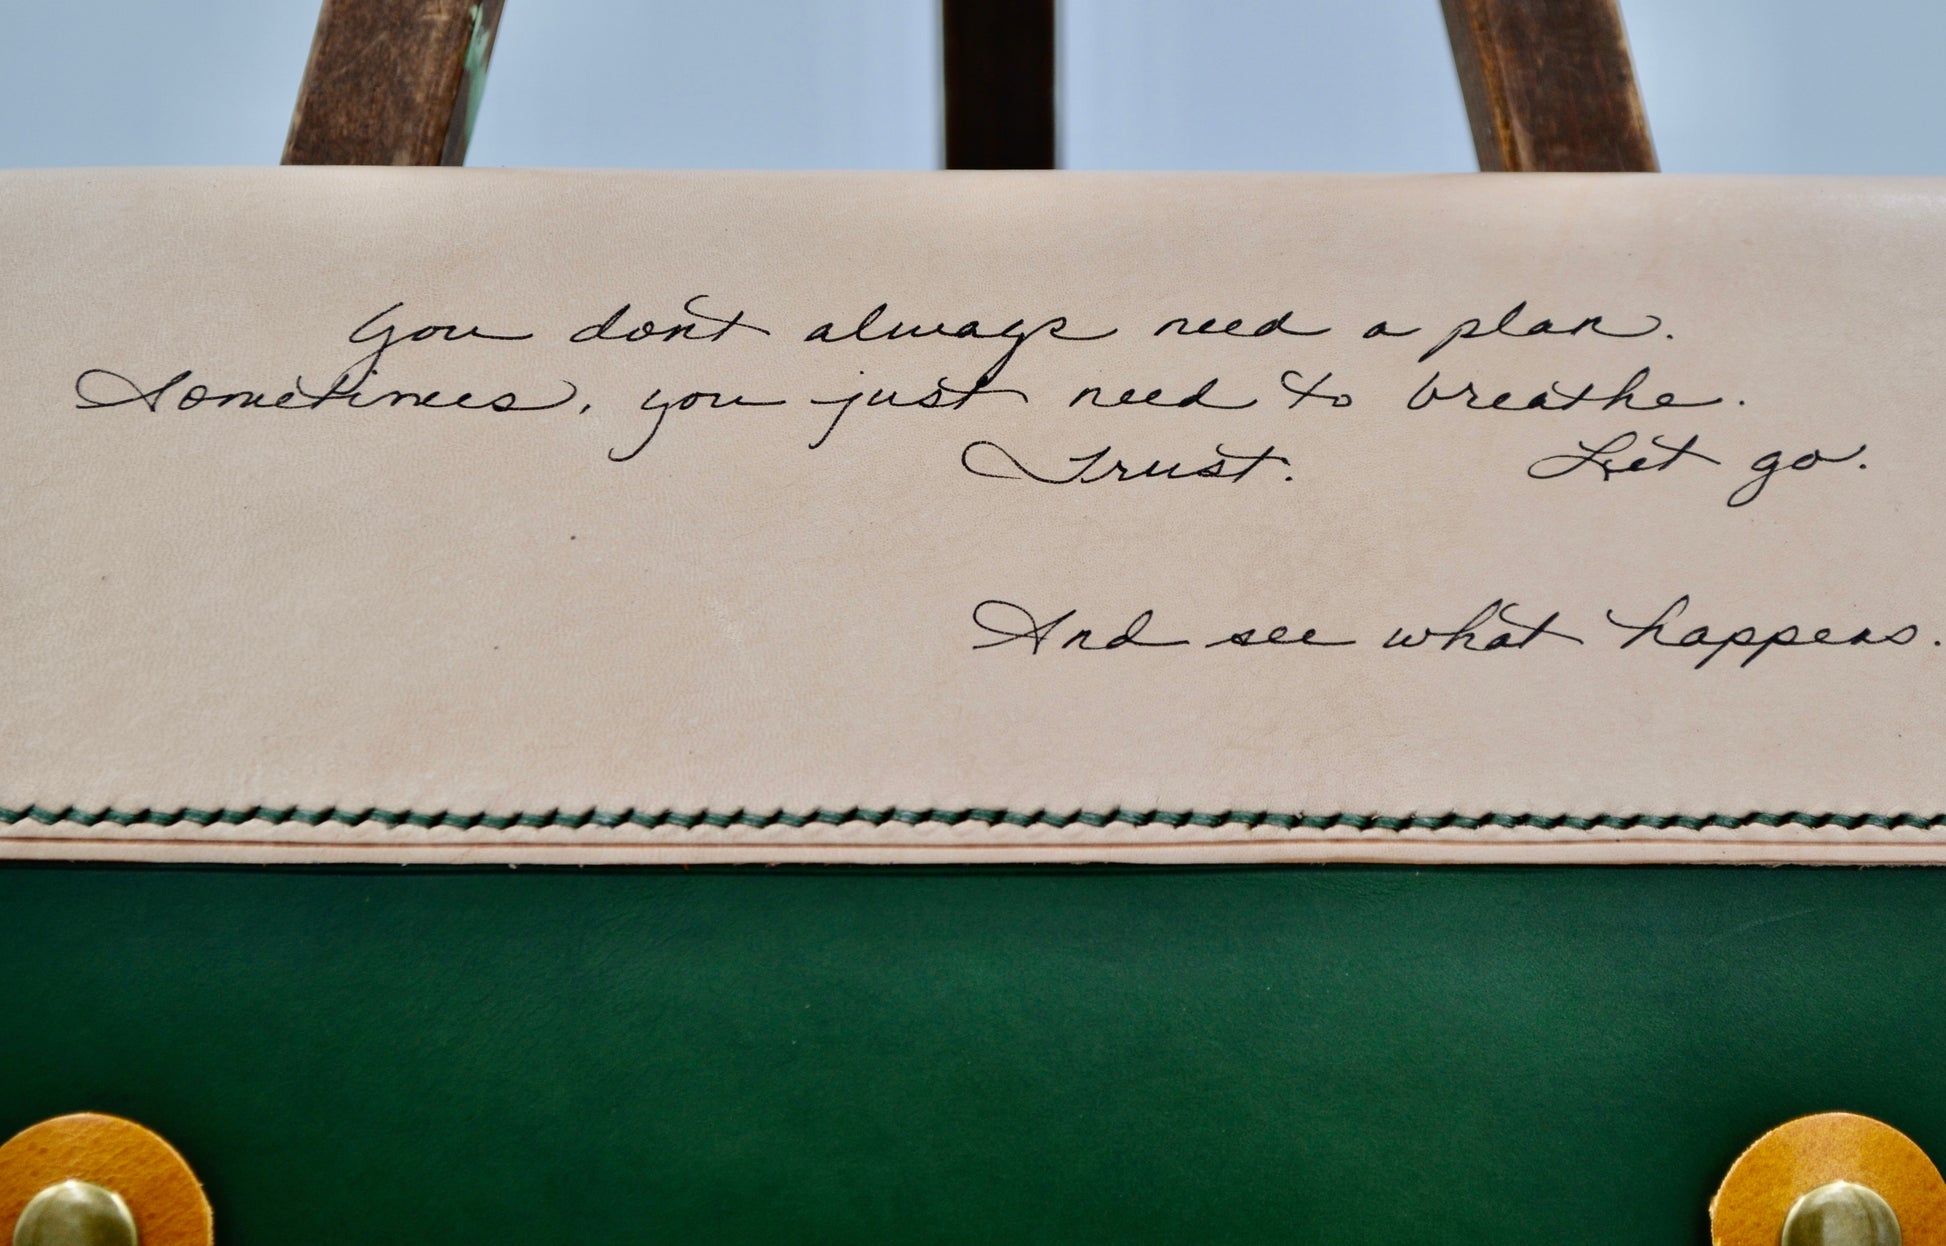 You don't always need a plan.
Sometimes, you just need to breathe.
Trust. Let go.
And see what happens.